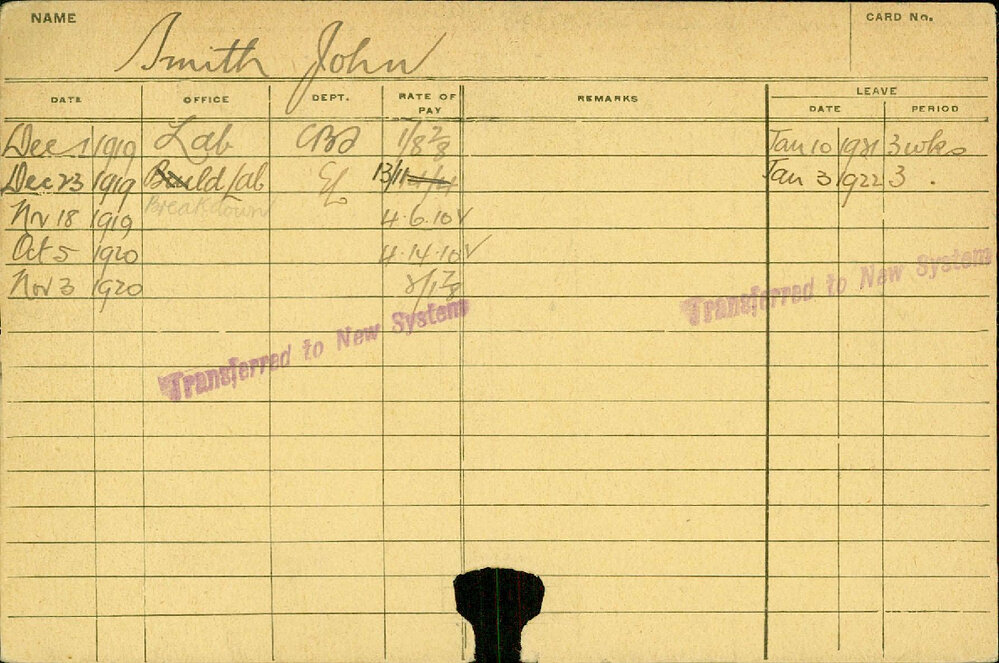 NAME CARD No.
Smith John
DATE OFFICE DEPT. RATE OF PAY REMARKS LEAVE
DATE PERIOD
Dec 1 1919 Lab 1/8 7/8 Jan 10 1921 3 wks
Dec 23 1919 Lab EL 13/11 Jan 3 1922 3 .
Breakdown
Nov 18 1919 4.6.10 V
Oct 5 1920 4.14.10 V
Nov 3 1920 2/1 7/8
Transferred to New System
Transferred to New System